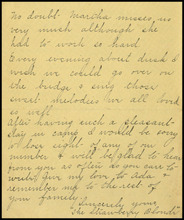 no doubt Martha misses us
very much although she
had to work so hard.
Every evening about dusk I
wish we could go over on
the bridge & sing those
sweet melodies we all loved
so well.
After having such a pleasant
stay in camp I would be sorry
to lose sight of any of our
number & will be glad to hear
from you as often as you care to
write. Give my love to Ada &
remember me to the rest of
your family.
Sincerely yours,
The Strawberry Blonde